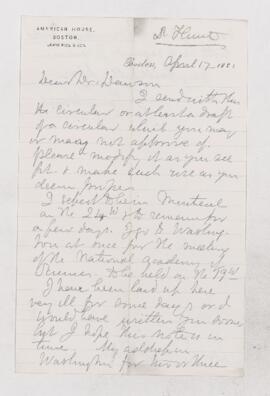 AMERICAN HOUSE,
BOSTON.
LEWIS RICE & SON.
Dr Hunt
Boston April 17 1881
Dear Dr. Dawson
I send with this
the circular or at least a draft
of a circular which you may
or may not approve of.
Please modify it as you see
fit & make such use as you
deem proper.
I expect to be in Montreal
on the 24th & to remain for
a few days. I go to Washing-
ton at once for the meeting
of the National Academy of
Sciences to be held on the 19th
I have been laid up here
very ill for some days or I
would have written you sooner
but I hope this note is in
time. My address in
Washington for two or three